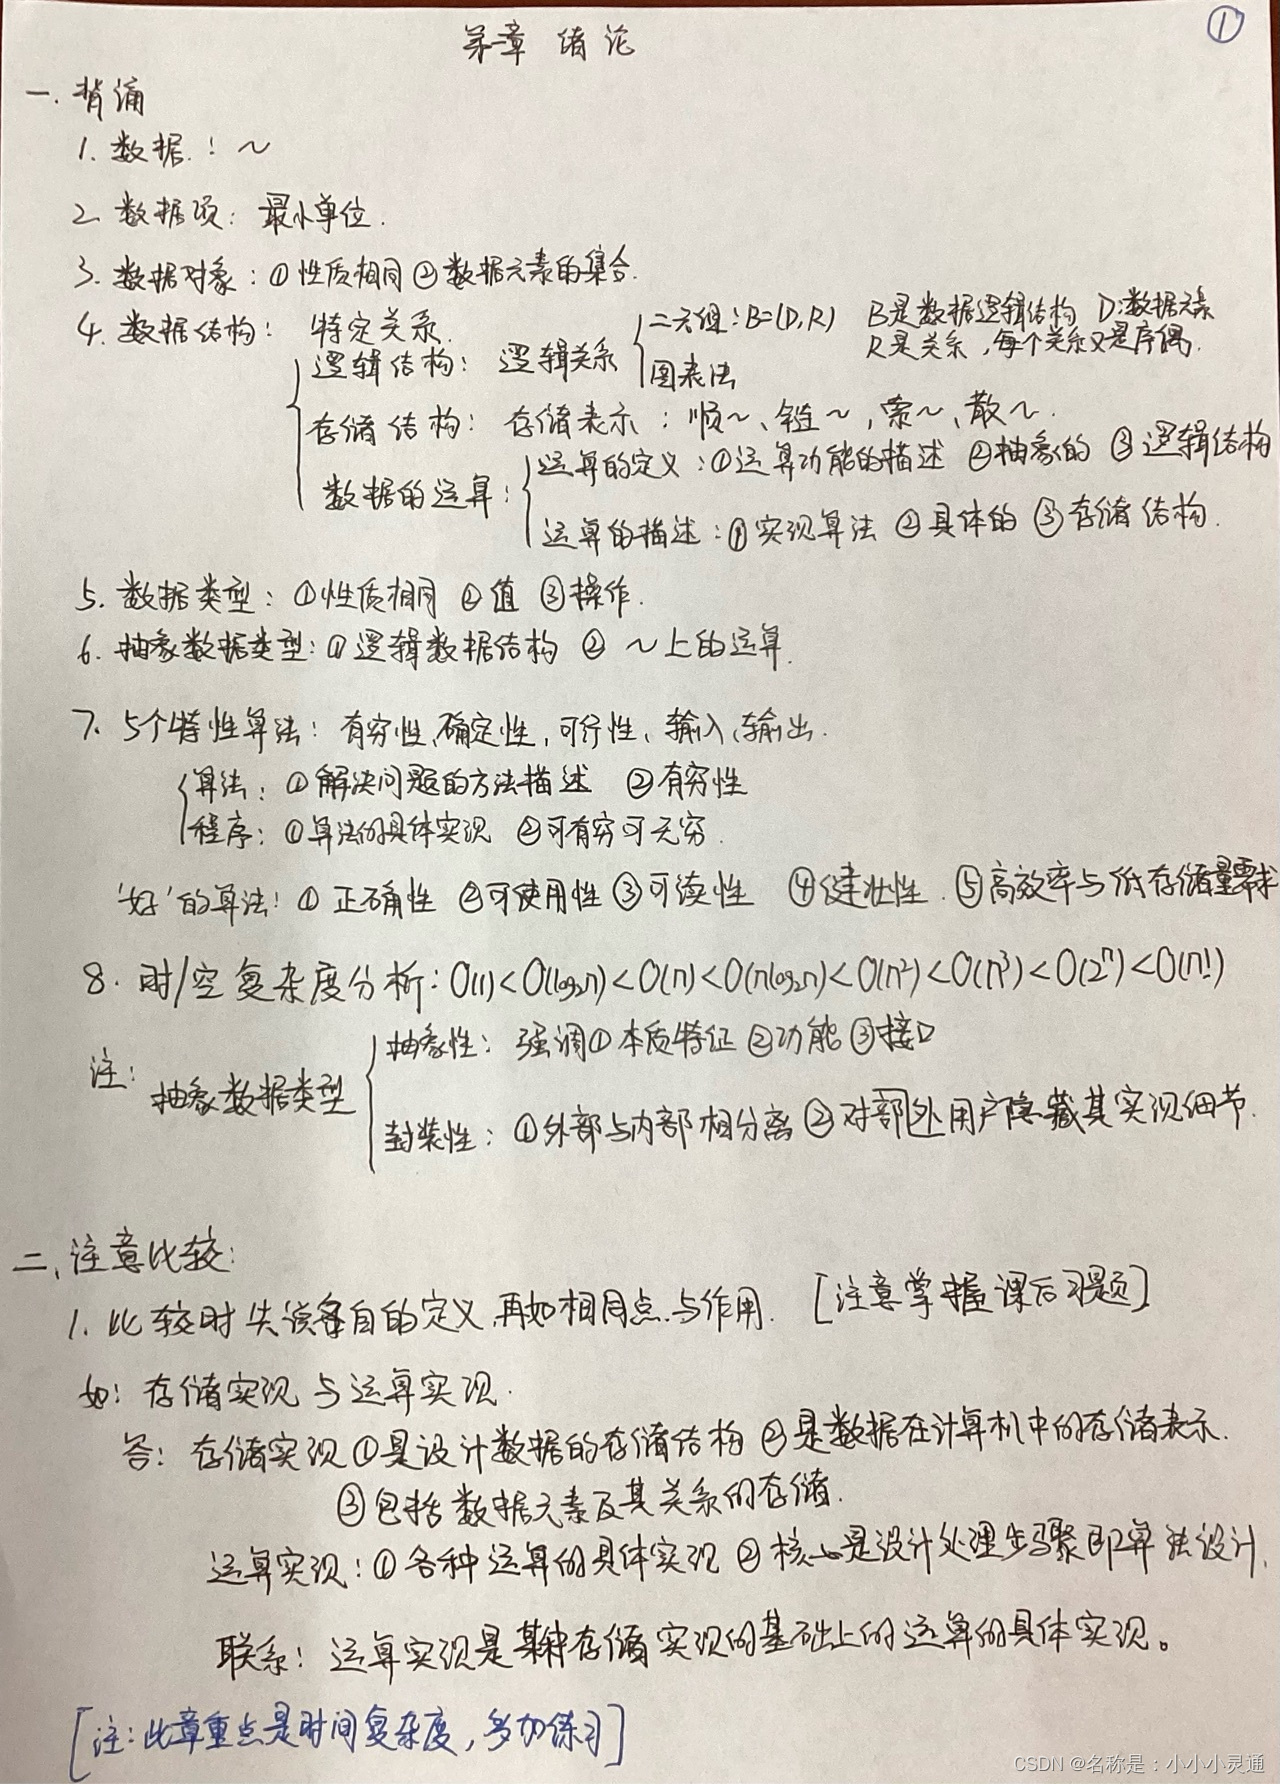 ①
第一章 绪论
一. 背诵
1. 数据.: ~
2. 数据项: 最小单位.
3. 数据对象: ①性质相同 ②数据元素的集合.
4. 数据结构: 特定关系.
逻辑结构: 逻辑关系
二元组: B=(D,R) B是数据逻辑结构 D:数据元素
R是关系,每个关系又是序偶.
图表法
存储结构: 存储表示: 顺~、链~,索~、散~.
数据的运算:
运算的定义: ①运算功能的描述 ②抽象的 ③逻辑结构
运算的描述: ①实现算法 ②具体的 ③存储结构.
5. 数据类型: ①性质相同 ②值 ③操作.
6. 抽象数据类型: ①逻辑数据结构 ② ~上的运算.
7. 5个特性算法: 有穷性、确定性、可行性、输入、输出.
算法: ①解决问题的方法描述 ②有穷性
程序: ①算法的具体实现 ②可有穷可无穷.
'好'的算法: ①正确性 ②可使用性 ③可读性 ④健壮性. ⑤高效率与低存储量需求
8. 时/空复杂度分析: O(1)<O(log₂n)<O(n)<O(nlog₂n)<O(n²)<O(n³)<O(2ⁿ)<O(n!)
注: 抽象数据类型
抽象性: 强调①本质特征 ②功能 ③接口
封装性: ①外部与内部相分离 ②对部外用户隐藏其实现细节.
二、注意比较:
1. 比较时先谈各自的定义,再如相同点与作用. [注意掌握课后习题]
如: 存储实现与运算实现.
答: 存储实现①是设计数据的存储结构 ②是数据在计算机中的存储表示.
③包括数据元素及其关系的存储.
运算实现: ①各种运算的具体实现 ②核心是设计处理步骤即算法设计.
联系: 运算实现是某种存储实现的基础上的运算的具体实现。
[注:此章重点是时间复杂度,多加练习]
CSDN @名称是:小小小灵通